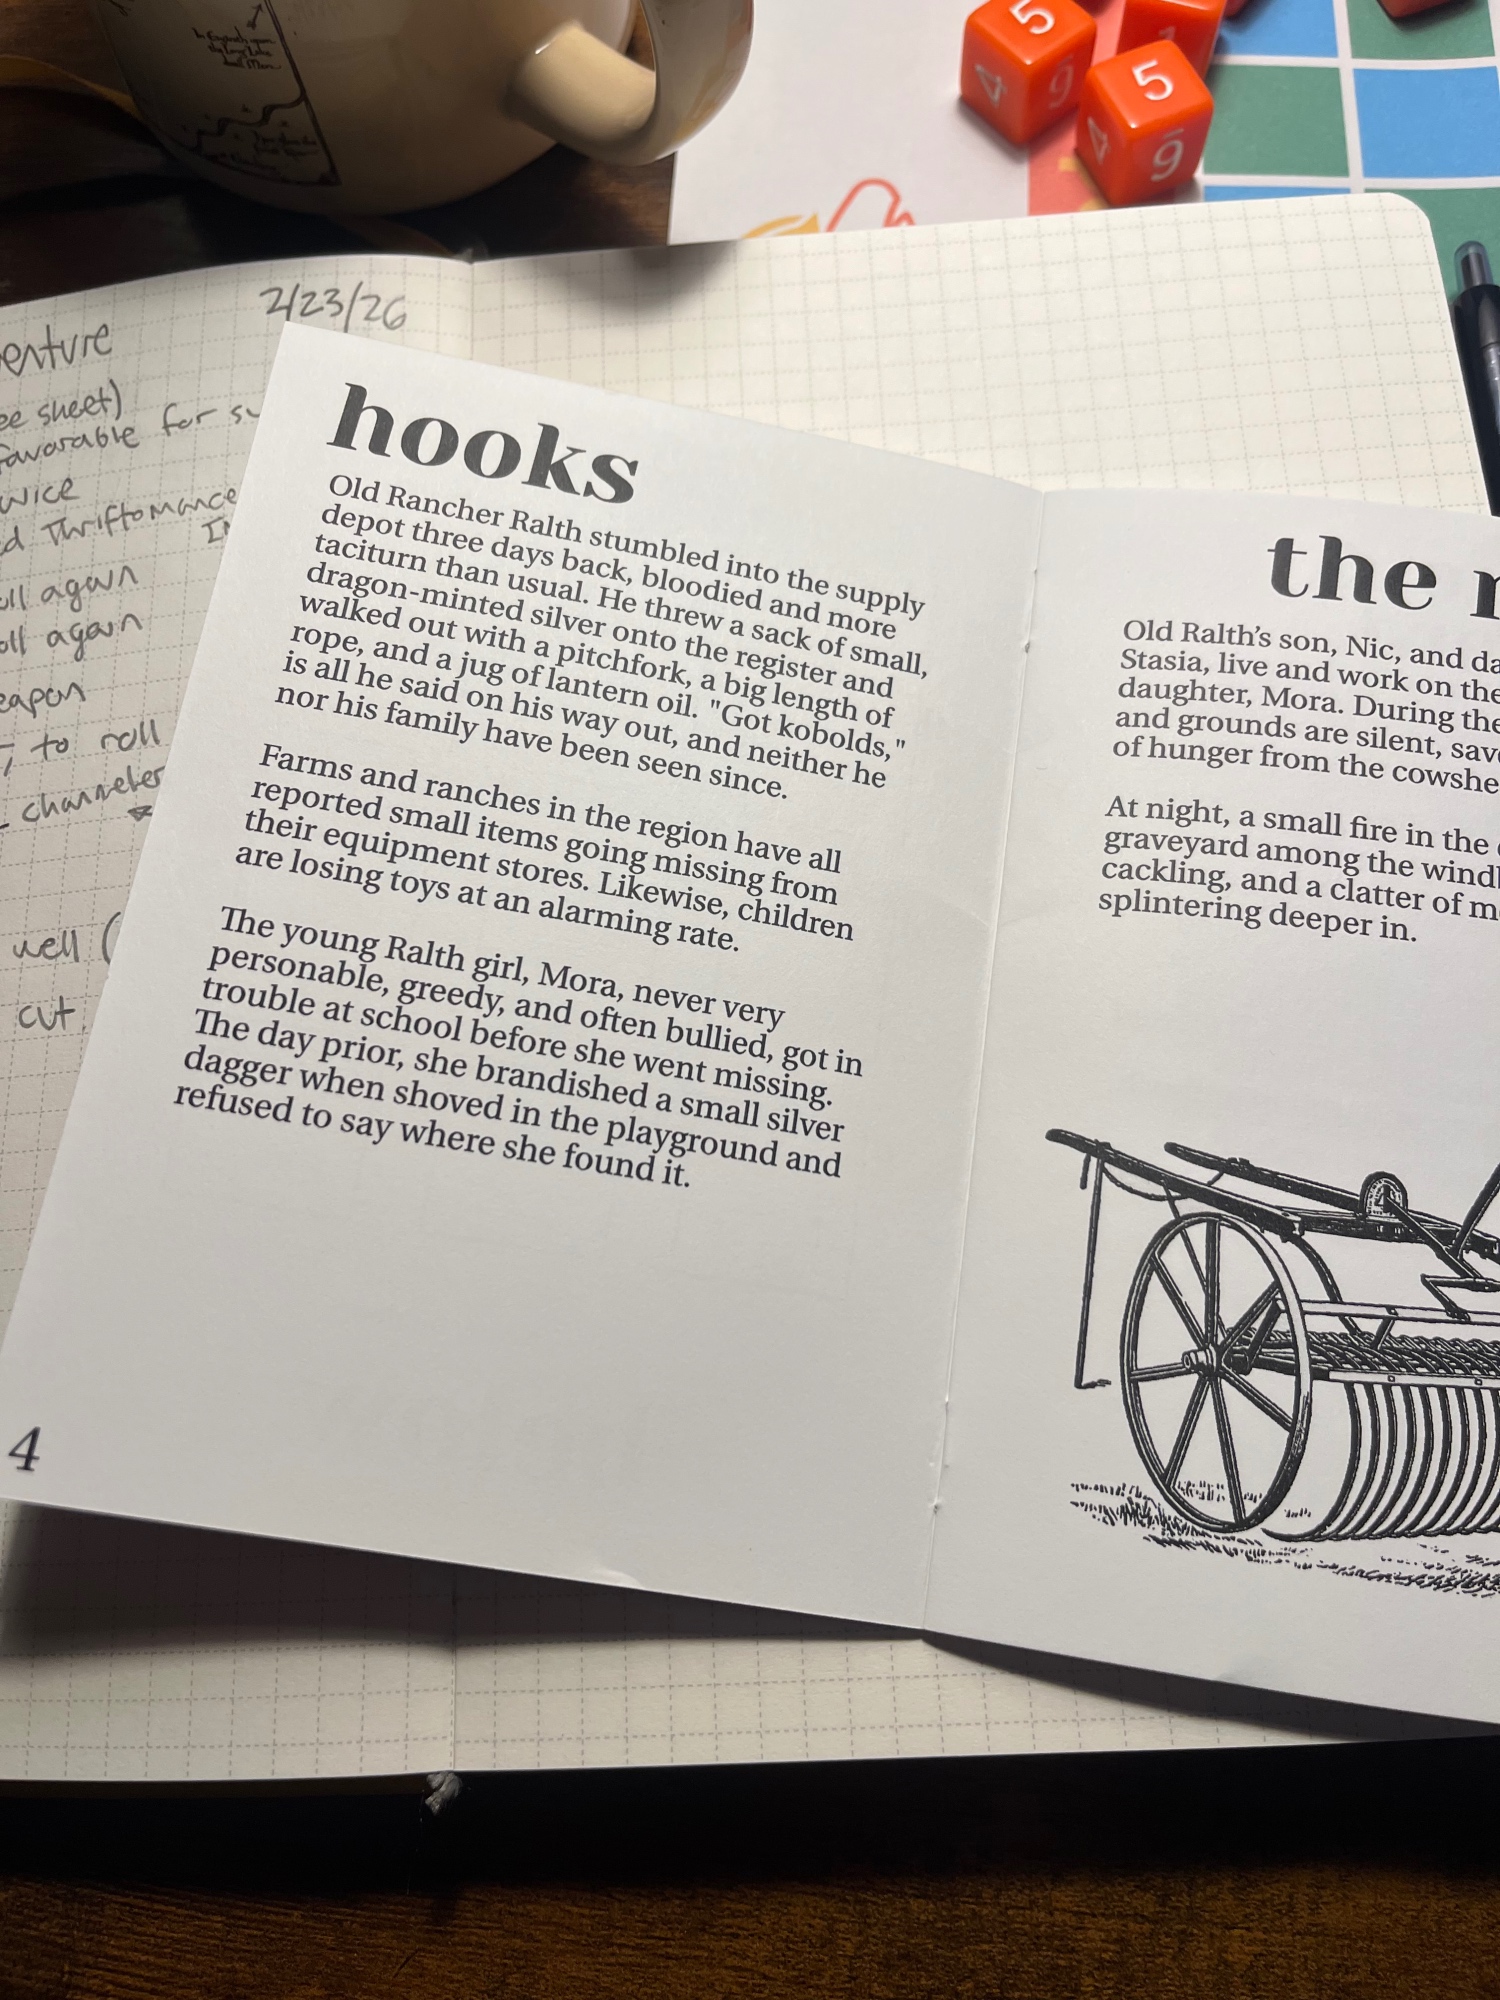 5
5
4
9
1
4
9
2/23/26
sheet)
favorable for
Thriftomance
again
again
to roll
character
well (
cut
hooks
Old Rancher Ralth stumbled into the supply
depot three days back, bloodied and more
taciturn than usual. He threw a sack of small,
dragon-minted silver onto the register and
walked out with a pitchfork, a big length of
rope, and a jug of lantern oil. "Got kobolds,"
is all he said on his way out, and neither he
nor his family have been seen since.
Farms and ranches in the region have all
reported small items going missing from
their equipment stores. Likewise, children
are losing toys at an alarming rate.
The young Ralth girl, Mora, never very
personable, greedy, and often bullied, got in
trouble at school before she went missing.
The day prior, she brandished a small silver
dagger when shoved in the playground and
refused to say where she found it.
4
the
Old Ralth's son, Nic, and
Stasia, live and work on the
daughter, Mora. During the
and grounds are silent,
of hunger from the
At night, a small fire in the
graveyard among the
cackling, and a clatter of
splintering deeper in.